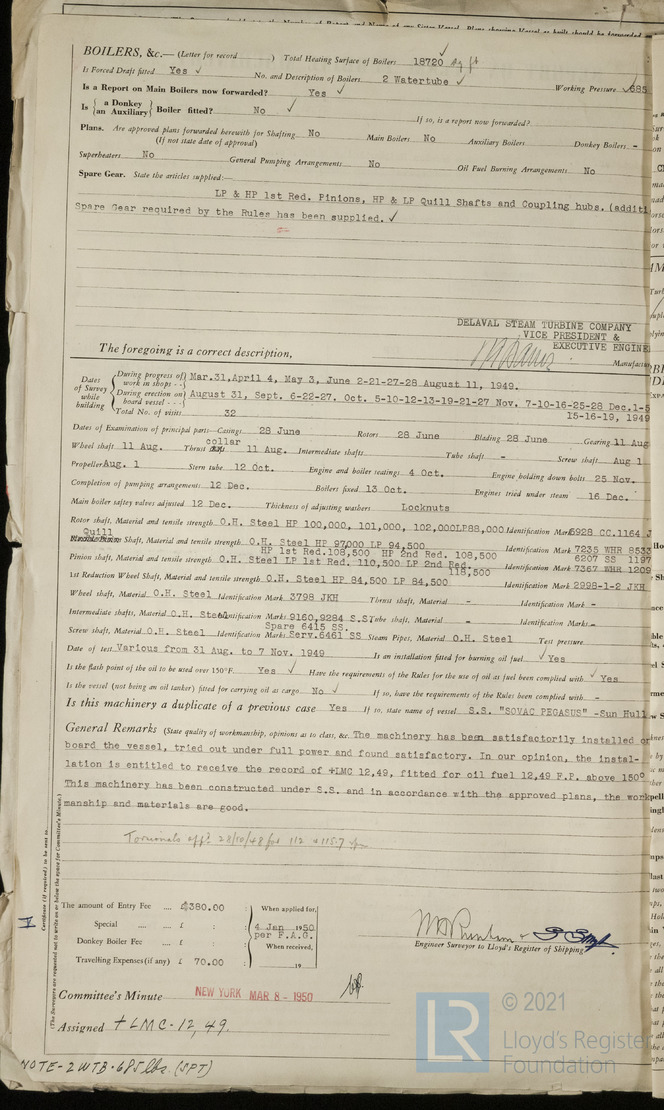 BOILERS, &c.—(Letter for record ) Total Heating Surface of Boilers 18720 sq ft
Is Forced Draft fitted Yes ✓ No. and Description of Boilers 2 Watertube ✓ Working Pressure 685
Is a Report on Main Boilers now forwarded? Yes ✓
Is { a Donkey / an Auxiliary } Boiler fitted? No ✓ If so, is a report now forwarded?
Plans. Are approved plans forwarded herewith for Shafting No Main Boilers No Auxiliary Boilers Donkey Boilers -
(If not state date of approval)
Superheaters No General Pumping Arrangements No Oil Fuel Burning Arrangements No
Spare Gear. State the articles supplied:—
LP & HP 1st Red. Pinions, HP & LP Quill Shafts and Coupling hubs. (additi
Spare Gear required by the Rules has been supplied. ✓
DELAVAL STEAM TURBINE COMPANY
VICE PRESIDENT &
EXECUTIVE ENGINE
The foregoing is a correct description,
Manufactu
Dates of Survey while building
During progress of work in shops - - Mar.31, April 4, May 3, June 2-21-27-28 August 11, 1949.
During erection on board vessel - - - August 31, Sept. 6-22-27, Oct. 5-10-12-13-19-21-27 Nov. 7-10-16-25-28 Dec.1-5
15-16-19, 1949
Total No. of visits 32
Dates of Examination of principal parts—Casings 28 June Rotors 28 June Blading 28 June Gearing 11 Aug
Wheel shaft 11 Aug. Thrust collar 11 Aug. Intermediate shafts Tube shaft - Screw shaft Aug 1
Propeller Aug. 1 Stern tube 12 Oct. Engine and boiler seatings 4 Oct. Engine holding down bolts 25 Nov.
Completion of pumping arrangements 12 Dec. Boilers fixed 13 Oct. Engines tried under steam 16 Dec.
Main boiler safety valves adjusted 12 Dec. Thickness of adjusting washers Locknuts
Rotor shaft, Material and tensile strength O.H. Steel HP 100,000, 101,000, 102,000 LP88,000 Identification Mark 6928 CC.1164 J
Quill Shaft, Material and tensile strength O.H. Steel HP 97,000 LP 94,500 Identification Mark 7235 WHR 8533
HP 1st Red.108,500 HP 2nd Red. 108,500 6207 SS 1197
Pinion shaft, Material and tensile strength O.H. Steel LP 1st Red. 110,500 LP 2nd Red. 118,500 Identification Mark 7367 WHR 1209
1st Reduction Wheel Shaft, Material and tensile strength O.H. Steel HP 84,500 LP 84,500 Identification Mark 2998-1-2 JKH
Wheel shaft, Material O.H. Steel Identification Mark 3798 JKH Thrust shaft, Material - Identification Mark -
Intermediate shafts, Material O.H. Steel Identification Marks 9160,9284 S.S Tube shaft, Material - Identification Marks -
Spare 6415 SS.
Screw shaft, Material O.H. Steel Identification Marks Serv.6461 SS Steam Pipes, Material O.H. Steel Test pressure
Date of test Various from 31 Aug. to 7 Nov. 1949 Is an installation fitted for burning oil fuel ✓ Yes
Is the flash point of the oil to be used over 150°F. Yes ✓ Have the requirements of the Rules for the use of oil as fuel been complied with ✓ Yes
Is the vessel (not being an oil tanker) fitted for carrying oil as cargo No ✓ If so, have the requirements of the Rules been complied with -
Is this machinery a duplicate of a previous case Yes If so, state name of vessel S.S. "SOVAC PEGASUS" -Sun Hull
General Remarks (State quality of workmanship, opinions as to class, &c. The machinery has been satisfactorily installed or
board the vessel, tried out under full power and found satisfactory. In our opinion, the instal-
lation is entitled to receive the record of +LMC 12,49, fitted for oil fuel 12,49 F.P. above 150°
This machinery has been constructed under S.S. and in accordance with the approved plans, the work
manship and materials are good.
Torsionals appd 28/10/48 for 112 & 115.7 rpm
The amount of Entry Fee .... £ $380.00 When applied for,
Special .... £ : 4 Jan 1950
per F.A.G.
Donkey Boiler Fee .... £ : When received,
Travelling Expenses (if any) £ 70.00 19
Engineer Surveyor to Lloyd's Register of Shipping
Committee's Minute NEW YORK MAR 8 - 1950
Assigned + LMC - 12, 49.
NOTE - 2 WTB - 685 lbs. (SPT)
Certificate (if required) to be sent to
(The Surveyors are requested not to write on or below the space for Committee's Minute.)
LR © 2021
Lloyd's Register
Foundation